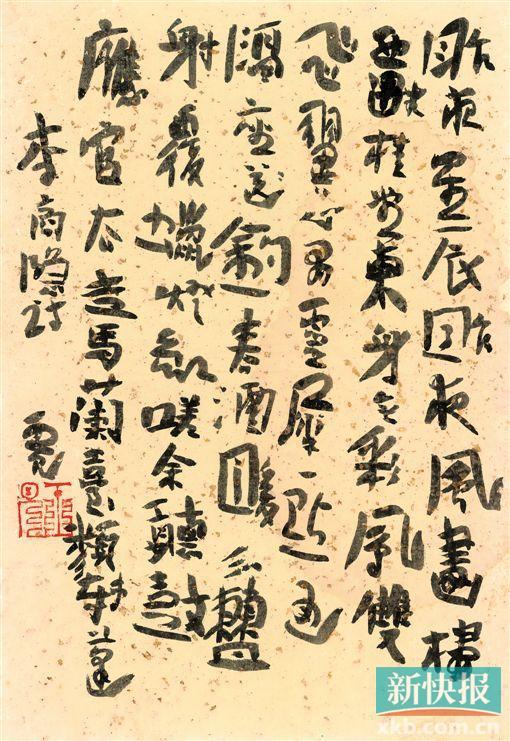 昨夜星辰昨夜風畫樓
西畔桂堂東身无彩鳳雙
飛翼心有靈犀一點通
隔座送鉤春酒暖分曹
射覆蠟燈紅嗟余聽鼓
應官去走馬蘭臺類轉蓬
李商隱詩
新快报
xkb.com.cn